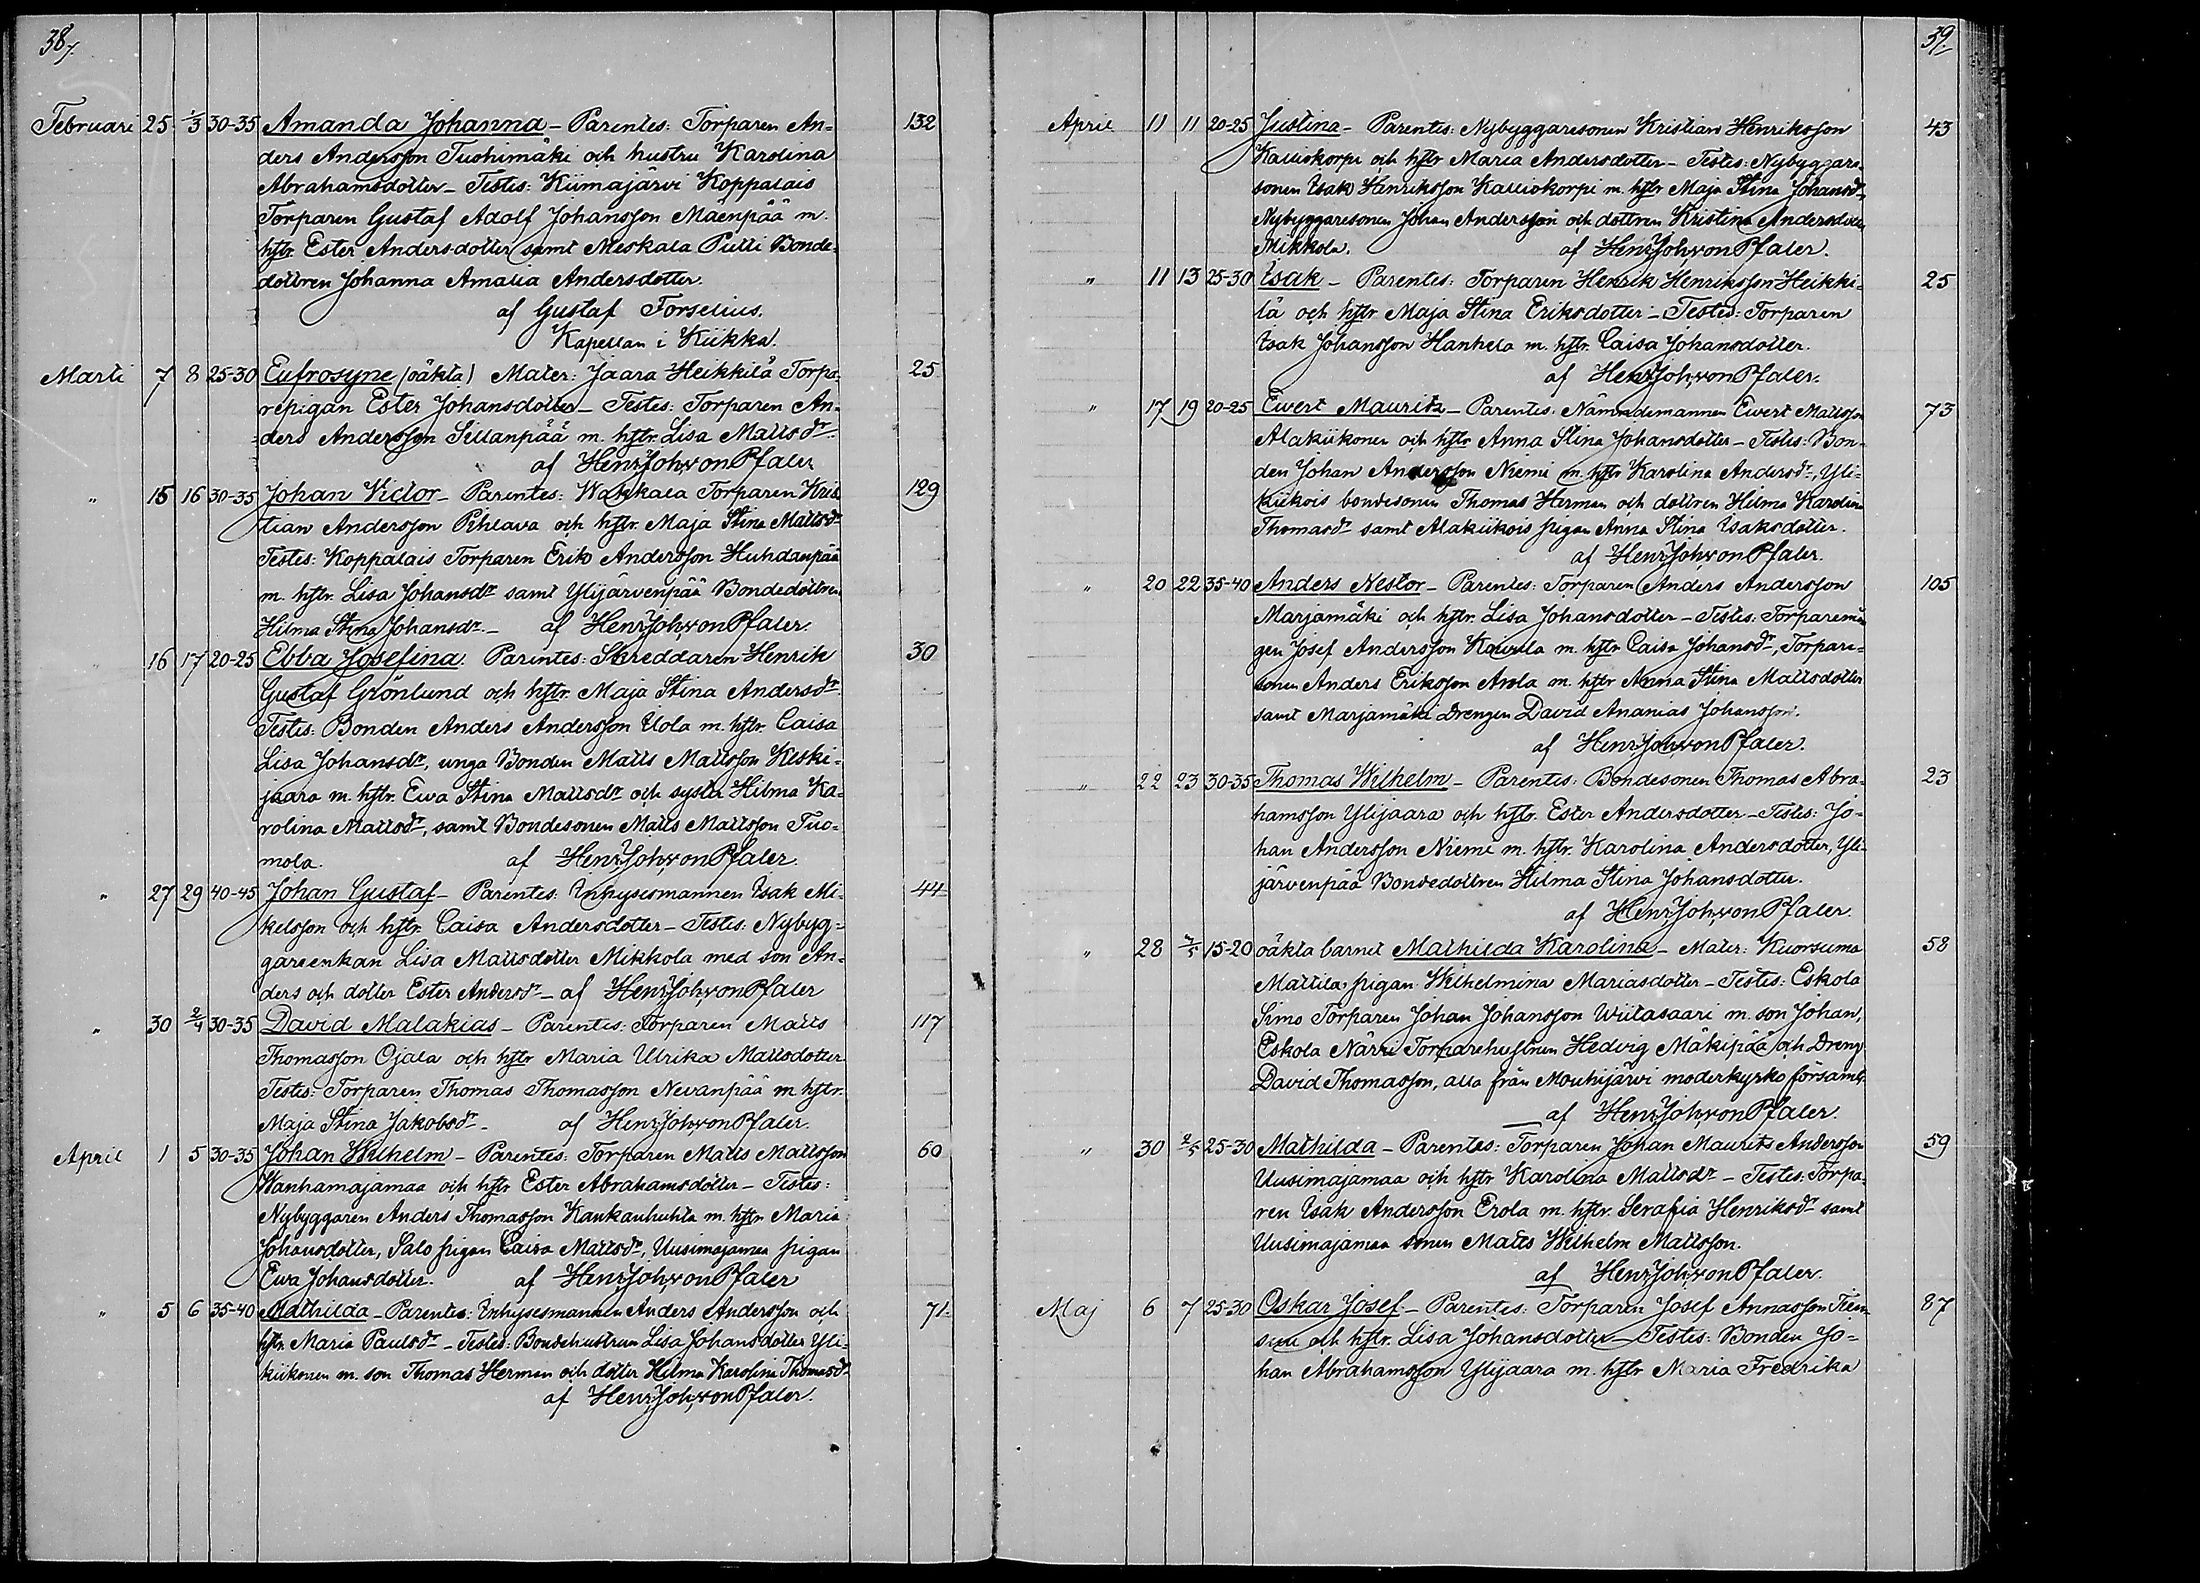 38.
Februari 25 1/3 30-35 Amanda Johanna - Parentes: Torparen An- 132
ders Andersson Tuohimäki och hustru Karolina
Abrahamsdotter - Testes: Kiimajärvi Koppalais
Torparen Gustaf Adolf Johansson Mäenpää m.
hstr. Ester Andersdotter samt Meskala Pulli Bonde-
dottren Johanna Amalia Andersdotter.
af Gustaf Forselius.
Kapellan i Kiikka.
Marti 7 8 25-30 Eufrosyne (oäkta) Mater: Jaara Heikkilä Torpa- 25
repigan Ester Johansdotter - Testes: Torparen An-
ders Andersson Sillanpää m. hstr. Lisa Mattsdr.
af Henr. Joh. von Pfaler
" 15 16 30-35 Johan Victor - Parentes: Wakkala Torparen Kris- 129
tian Andersson Pihlava och hstr. Maja Stina Mattsdr
Testes: Koppalais Torparen Erik Andersson Huhdanpää
m. hstr. Lisa Johansdr samt Ylijärvenpää Bondedottren
Hilma Stina Johansdr. - af Henr. Joh. von Pfaler.
" 16 17 20-25 Ebba Josefina. Parentes: Skreddaren Henrik 30
Gustaf Grönlund och hstr. Maja Stina Andersdr.
Testes: Bonden Anders Andersson Uola m. hstr. Caisa
Lisa Johansdr, unga Bonden Matts Mattsson Keski-
jaara m. hstr. Ewa Stina Mattsdr och syster Hilma Ka-
rolina Mattsdr, samt Bondesonen Matts Mattsson Tuo-
mola. af Henr. Joh. von Pfaler.
" 27 29 40-45 Johan Gustaf - Parentes: Inhysesmannen Isak Mi- 44
kelsson och hstr. Caisa Andersdotter - Testes: Nybyg-
gareenkan Lisa Mattsdotter Mikkola med son An-
ders och dotter Ester Andersdr - af Henr. Joh. von Pfaler
" 30 2/4 30-35 David Malakias - Parentes: Torparen Matts 117
Thomasson Ojala och hstr Maria Ulrika Mattsdotter
Testes: Torparen Thomas Thomasson Nevanpää m. hstr.
Maja Stina Jakobsdr. af Henr. Joh. von Pfaler.
April 1 5 30-35 Johan Wilhelm - Parentes: Torparen Matts Mattsson 60
Wanhamajamaa och hstr Ester Abrahamsdotter - Testes:
Nybyggaren Anders Thomasson Kankauhuhta m. hstr Maria
Johansdotter, Salo pigan Caisa Mattsdr, Uusimajamaa pigan
Ewa Johansdotter. af Henr. Joh. von Pfaler
" 5 6 35-40 Mathilda - Parentes: Inhysesmannen Anders Andersson och 71
hstr Maria Paulsdr - Testes: Bondehustrun Lisa Johansdotter Yli-
kiikonen m. son Thomas Herman och dotter Hilma Karolina Thomasdr
af Henr. Joh. von Pfaler.
39.
April 11 11 20-25 Justina - Parentes: Nybyggaresonen Kristian Henriksson 43
Kalliokorpi och hstr Maria Andersdotter - Testes: Nybyggare-
sonen Isak Henriksson Kalliokorpi m. hstr Maja Stina Johansdr,
Nybyggaresonen Johan Andersson och dottren Kristina Andersdotter
Mikkola. af Henr. Joh. von Pfaler.
" 11 13 25-30 Isak - Parentes: Torparen Henrik Henriksson Heikki- 25
lä och hstr Maja Stina Eriksdotter - Testes: Torparen
Isak Johansson Hanhela m. hstr. Caisa Johansdotter.
af Henr. Joh. von Pfaler.
" 17 19 20-25 Ewert Mauritz - Parentes: Nämndemannen Ewert Mattsson 73
Alakiikonen och hstr Anna Stina Johansdotter - Testes: Bon-
den Johan Andersson Niemi m. hstr Karolina Andersdr, Yli-
kiikois bondesonen Thomas Herman och dottren Hilma Karolina
Thomasdr samt Alakiikois pigan Anna Stina Isaksdotter.
af Henr. Joh. von Pfaler.
" 20 22 35-40 Anders Nestor - Parentes: Torparen Anders Andersson 105
Marjamäki och hstr. Lisa Johansdotter - Testes: Torparemå-
gen Josef Andersson Kaurila m. hstr Caisa Johansdr, Torpare-
sonen Anders Eriksson Arola m. hstr Anna Stina Mattsdotter
samt Marjamäki Drengen David Ananias Johansson.
af Henr. Joh. von Pfaler.
" 22 23 30-35 Thomas Wilhelm - Parentes: Bondesonen Thomas Abra- 23
hamsson Ylijaara och hstr. Ester Andersdotter - Testes: Jo-
han Andersson Niemi m. hstr. Karolina Andersdotter, Yli-
järvenpää Bondedottren Hilma Stina Johansdotter.
af Henr. Joh. von Pfaler.
" 28 7/5 15-20 oäkta barnet Mathilda Karolina - Mater: Kuorsuma 58
Mattila pigan Wilhelmina Mariasdotter - Testes: Eskola
Simo Torparen Johan Johansson Wiitasaari m. son Johan,
Eskola Närri Torparehustrun Hedvig Mäkipää och Dreng
David Thomasson, alla från Mouhijärvi moderkyrko församl.
af Henr. Joh. von Pfaler.
" 30 2/5 25-30 Mathilda - Parentes: Torparen Johan Maurits Andersson 59
Uusimajamaa och hstr Karolina Mattsdr - Testes: Torpa-
ren Isak Andersson Erola m. hstr. Serafia Henriksdr samt
Uusimajamaa sonen Matts Wilhelm Mattsson.
af Henr. Joh. von Pfaler.
Maj 6 7 25-30 Oskar Josef - Parentes: Torparen Josef Annasson 87
och hstr. Lisa Johansdotter - Testes: Bonden Jo-
han Abrahamsson Ylijaara m. hstr Maria Fredrika